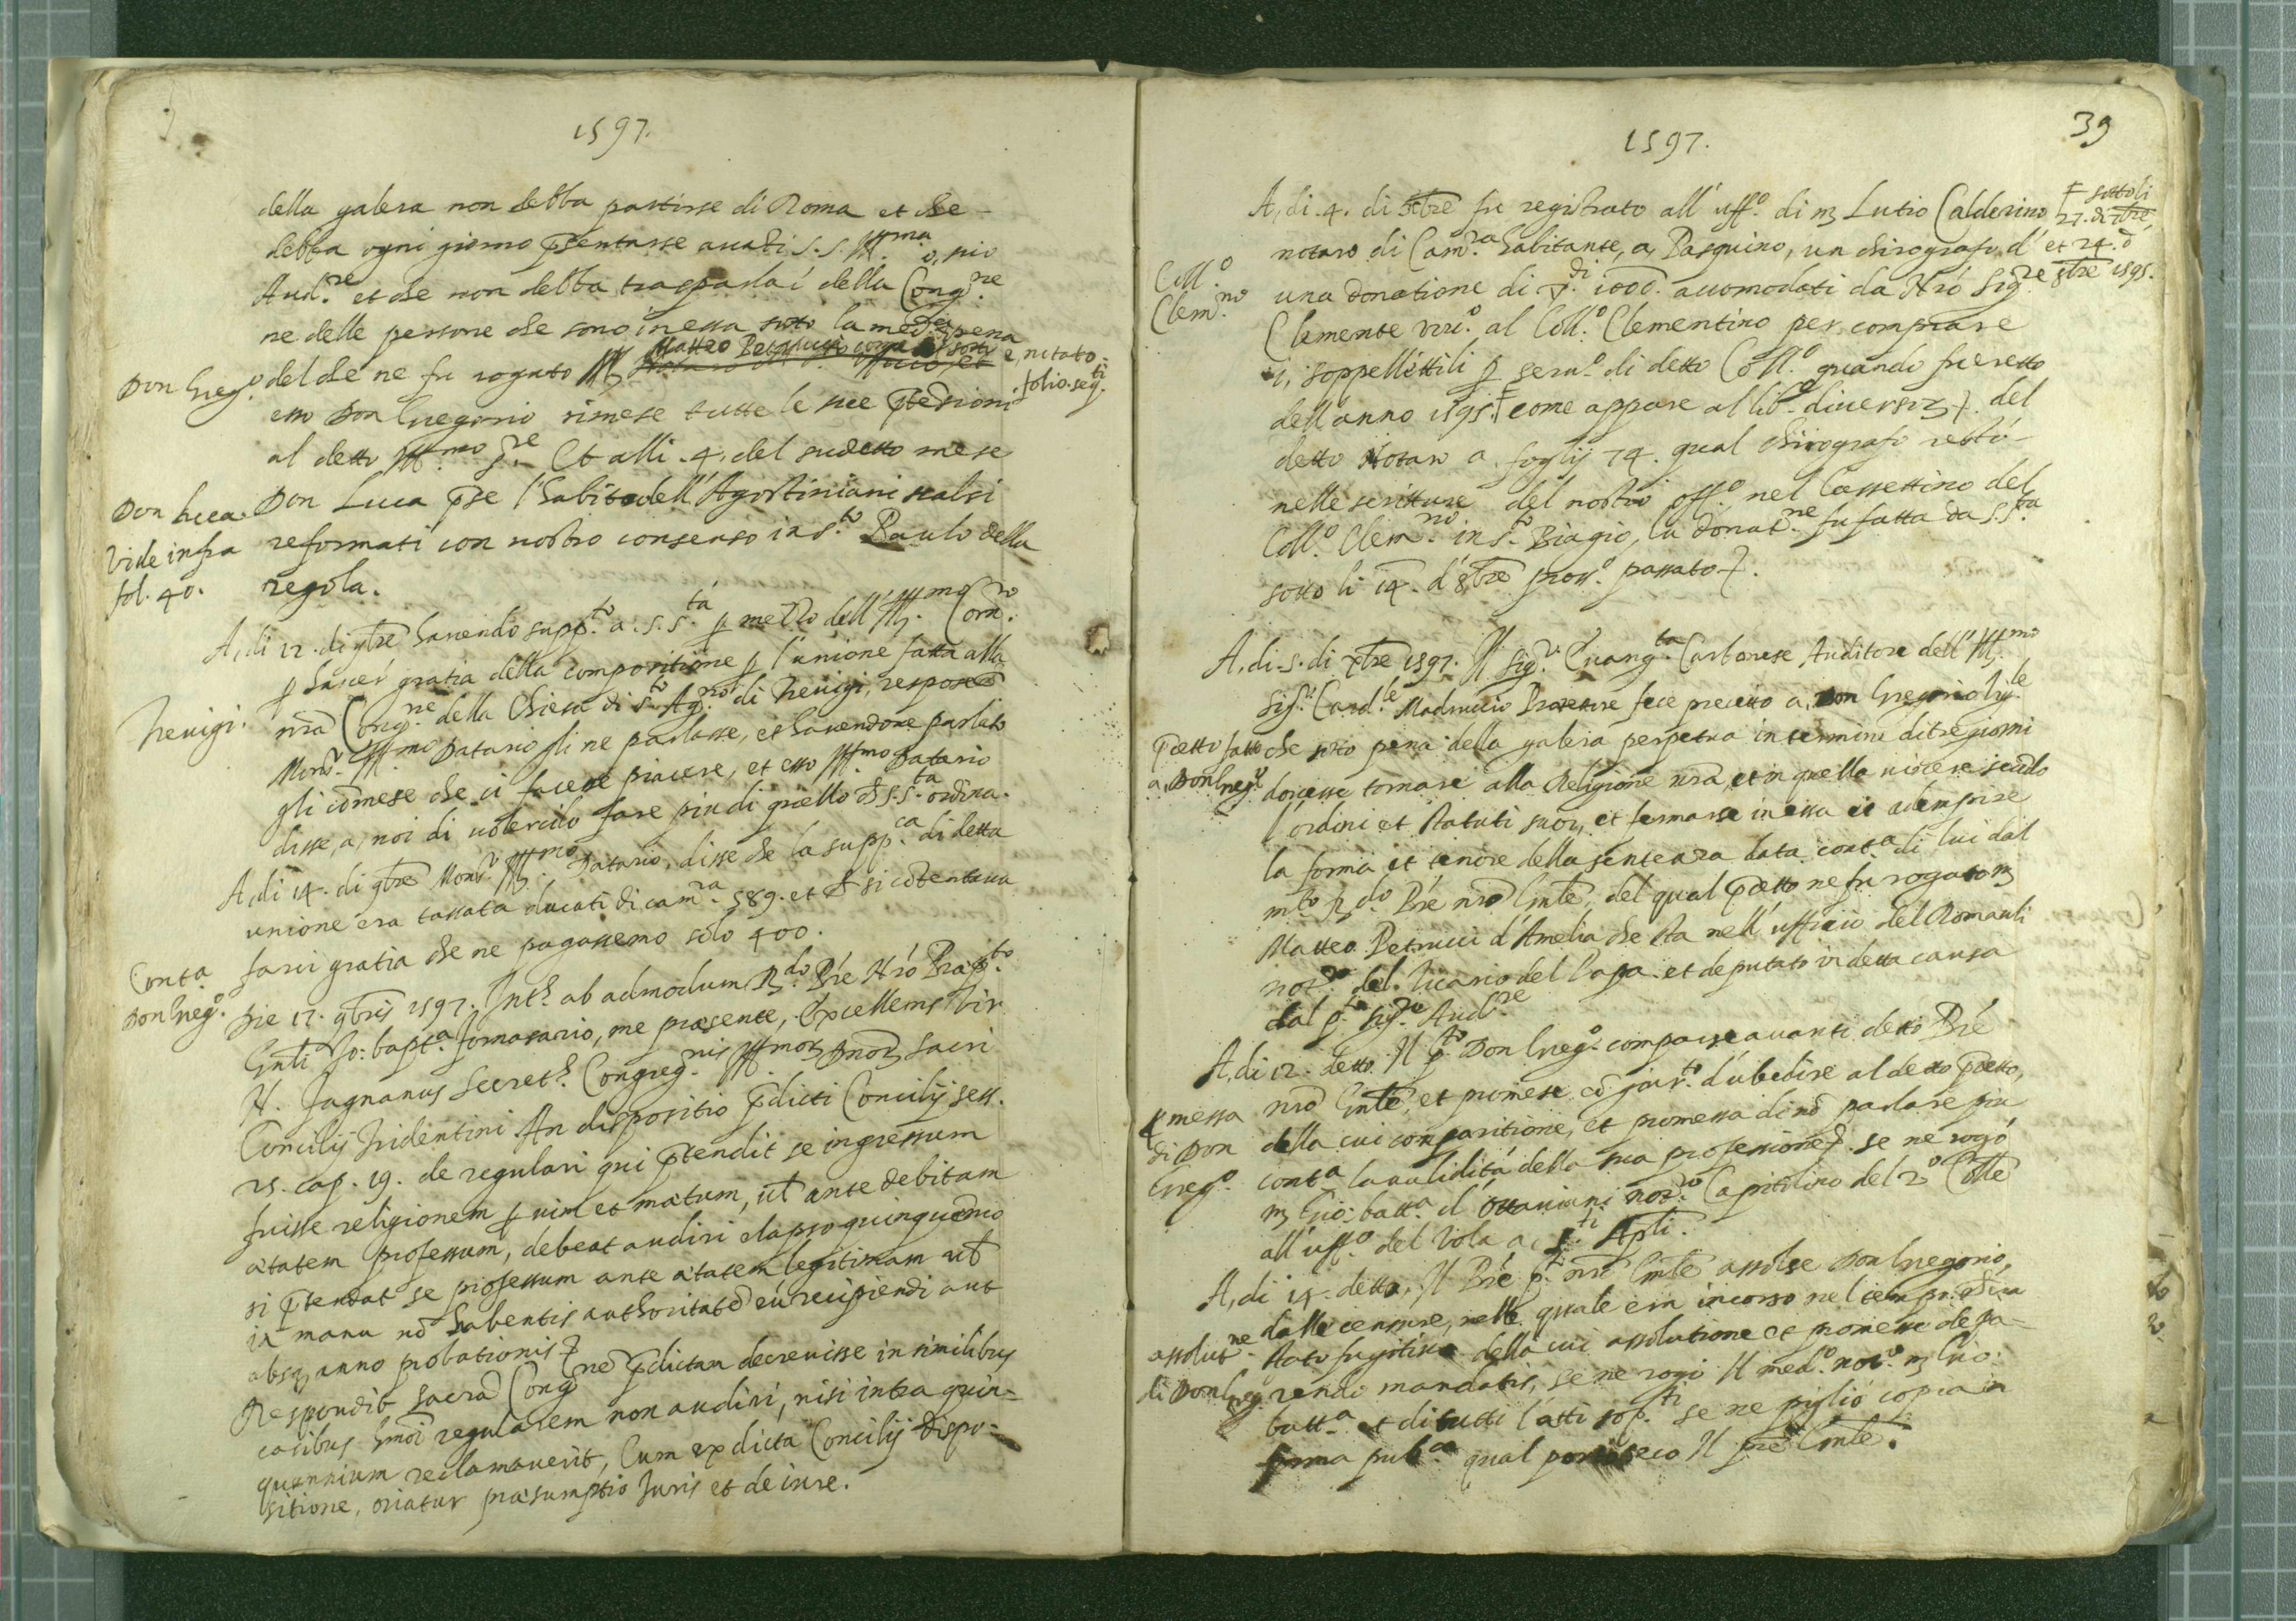 1597.
della galera non debba partirse di Roma et che
debba ogni giorno p̄sentarse auāti S.S. Ill.ma o, suo
Aud.re et che non debba trasparlar della Cong.ne
ne delle persone che sono in essa sotto la med.a pena
Don Greg.o
del che ne fu rogato
Matteo Petrucci
è notato
folio seq.ti
esso Don Gregorio rimese tutte le sue p̄tēsioni
al detto Ill.mo Et alli .4. del sudetto mese
Don Luca.
Vide infra
fol. 40.
Don Luca p̄se l'habito dell'Agostiniani scalsi
reformati con nostro consenso in S.to Paulo della
regola.
A, di 12. di 9bre hauendo supp.to a. S. S.tà p mezzo dell'Ill.mo Corn.ro
p hauer gratia della compositione p l'unione fatta alla
Treuigi.
nrā Cong.ne della Chiesa di S.to Ag.no di Treuigi, respose
Mons.r Ill.mo Datario gli ne parlasse, et hauendone parlato
gli cōmese che ci facese piacere, et esso Ill.mo Datario
disse, a, noi di uolercilo fare piu di quello ch S.S.ta ordina.
A, di 14. di 9bre Mons.r Ill.mo Datario, disse che la supp.ca di detta
unione era tassata ducati di cam.ra 589. et ch si cōtentaua
farci gratia che ne pagassemo solo 400.
Cont.a
Don Greg.o
Die 17. 9bris 1597. Int.s ab admodum R.do Prē Nrō Prap.to
Gnīli Jo: bapt.a Fornasario, me presente, Excellens Vir
N. Fagnanus Secret.s Congreg.nis Ill.mor Dnor sacri
Concilij Tridentini. An dispositio p̄dicti Concilij sess.
25. cap. 19. de regulari qui p̄tendit se ingressum
fuisse religionem p uim et metum, uel ante debitam
ætatem professum, debeat audiri elapso quinquēnio
si p̄tendat se professum ante ætatem legitimam uel
in manu nō habentis authoritatē eū recipiendi aut
absq, anno probationis
Respondit sacrā Cong.nē p̄dictam decreuisse in similibus
casibus hmōi regularem non audiri, nisi intra quin=
quennium reclamauerit, Cum ex dicta Concilij dispo=
sitione, oriatur præsumptio Juris et de iure.
39
1597.
A, di .4. di Xbre fu registrato all'uff.o di m Lutio Calderino
sotto li
27. di 7bre,
et 24. d
8bre 1595.
notaro di Cam.ra habitante, a, Pasquino, un chirografo d'
Coll.o
Clem.no
una donatione di ▽.di 1000. accomodati da Nrō Sig.re
Clemente viii.o al Coll.o Clementino per comprare
i, soppellettili p seru.o di detto Coll.o quando fu eretto
dell'anno 1595. come appare al lib.o diuersor. del
detto Notaro a foglij 74. qual chirografo restò
nelle scritture del nostro off.o nel Cassettino del
Coll.o Clem.no in S.to Biagio, la donat.ne fu fatta da S.S.ta
sotto li 14. d'8bre pross.o passato.
A, di .5. di Xbre 1597. Il Sig.r Euang.ta Carbonese Auditore dell'Ill.mo
Sig.r Card.le Madruccio Protettore fece precetto a, Don Gregorio
p̄cetto fatto
a, Don Greg.o
che sotto pena della galera perpetua in termine di tre giorni
douesse tornare alla Religione nrā, et in quella uiuere secōdo
l'ordini et statuti suoi, et fermarse in essa et adempire
la forma et tenore della sentenza data cont.a di lui dal
m.to R.do Prē nrō Gnīle, del qual p̄cetto ne fu rogato m
Matteo Petrucci d'Amelia che sta nell'ufficio del Romauli
not.ro del Vicario del Papa et deputato in detta causa
dal p.to Sig.re Aud.re
A, di 12. detto. Il p.to Don Greg.o comparse auanti detto Prē
p messa
di Don
Greg.o
nrō Gnīle, et promese cō giur.to d'ubedire al detto p̄cetto,
della cui comparitione, et promessa di nō parlare piu
cont.a la ualidità della sua professione se ne rogò
m Gio: batt.a d'Ottauiani not.ro Capitolino del 2.o Colle
all'uff.o del Vola a, S.ti Apli.
A, di 14. detto, Il Prē p.to nrō Gnīle assolse Don Gregorio,
assolut.ne
di Don Greg.
dalle censure, nelle quale era incorso nel tempo ch'era
stato fugitiuo della cui assolutione et promesse de pa=
rendo mandatis, se ne rogò Il med.o not.o m Gio:
batt.a et di tutti l'atti sop.ti se ne pigliò copia in
forma pub.ca qual portò seco Il prē Gnīle.